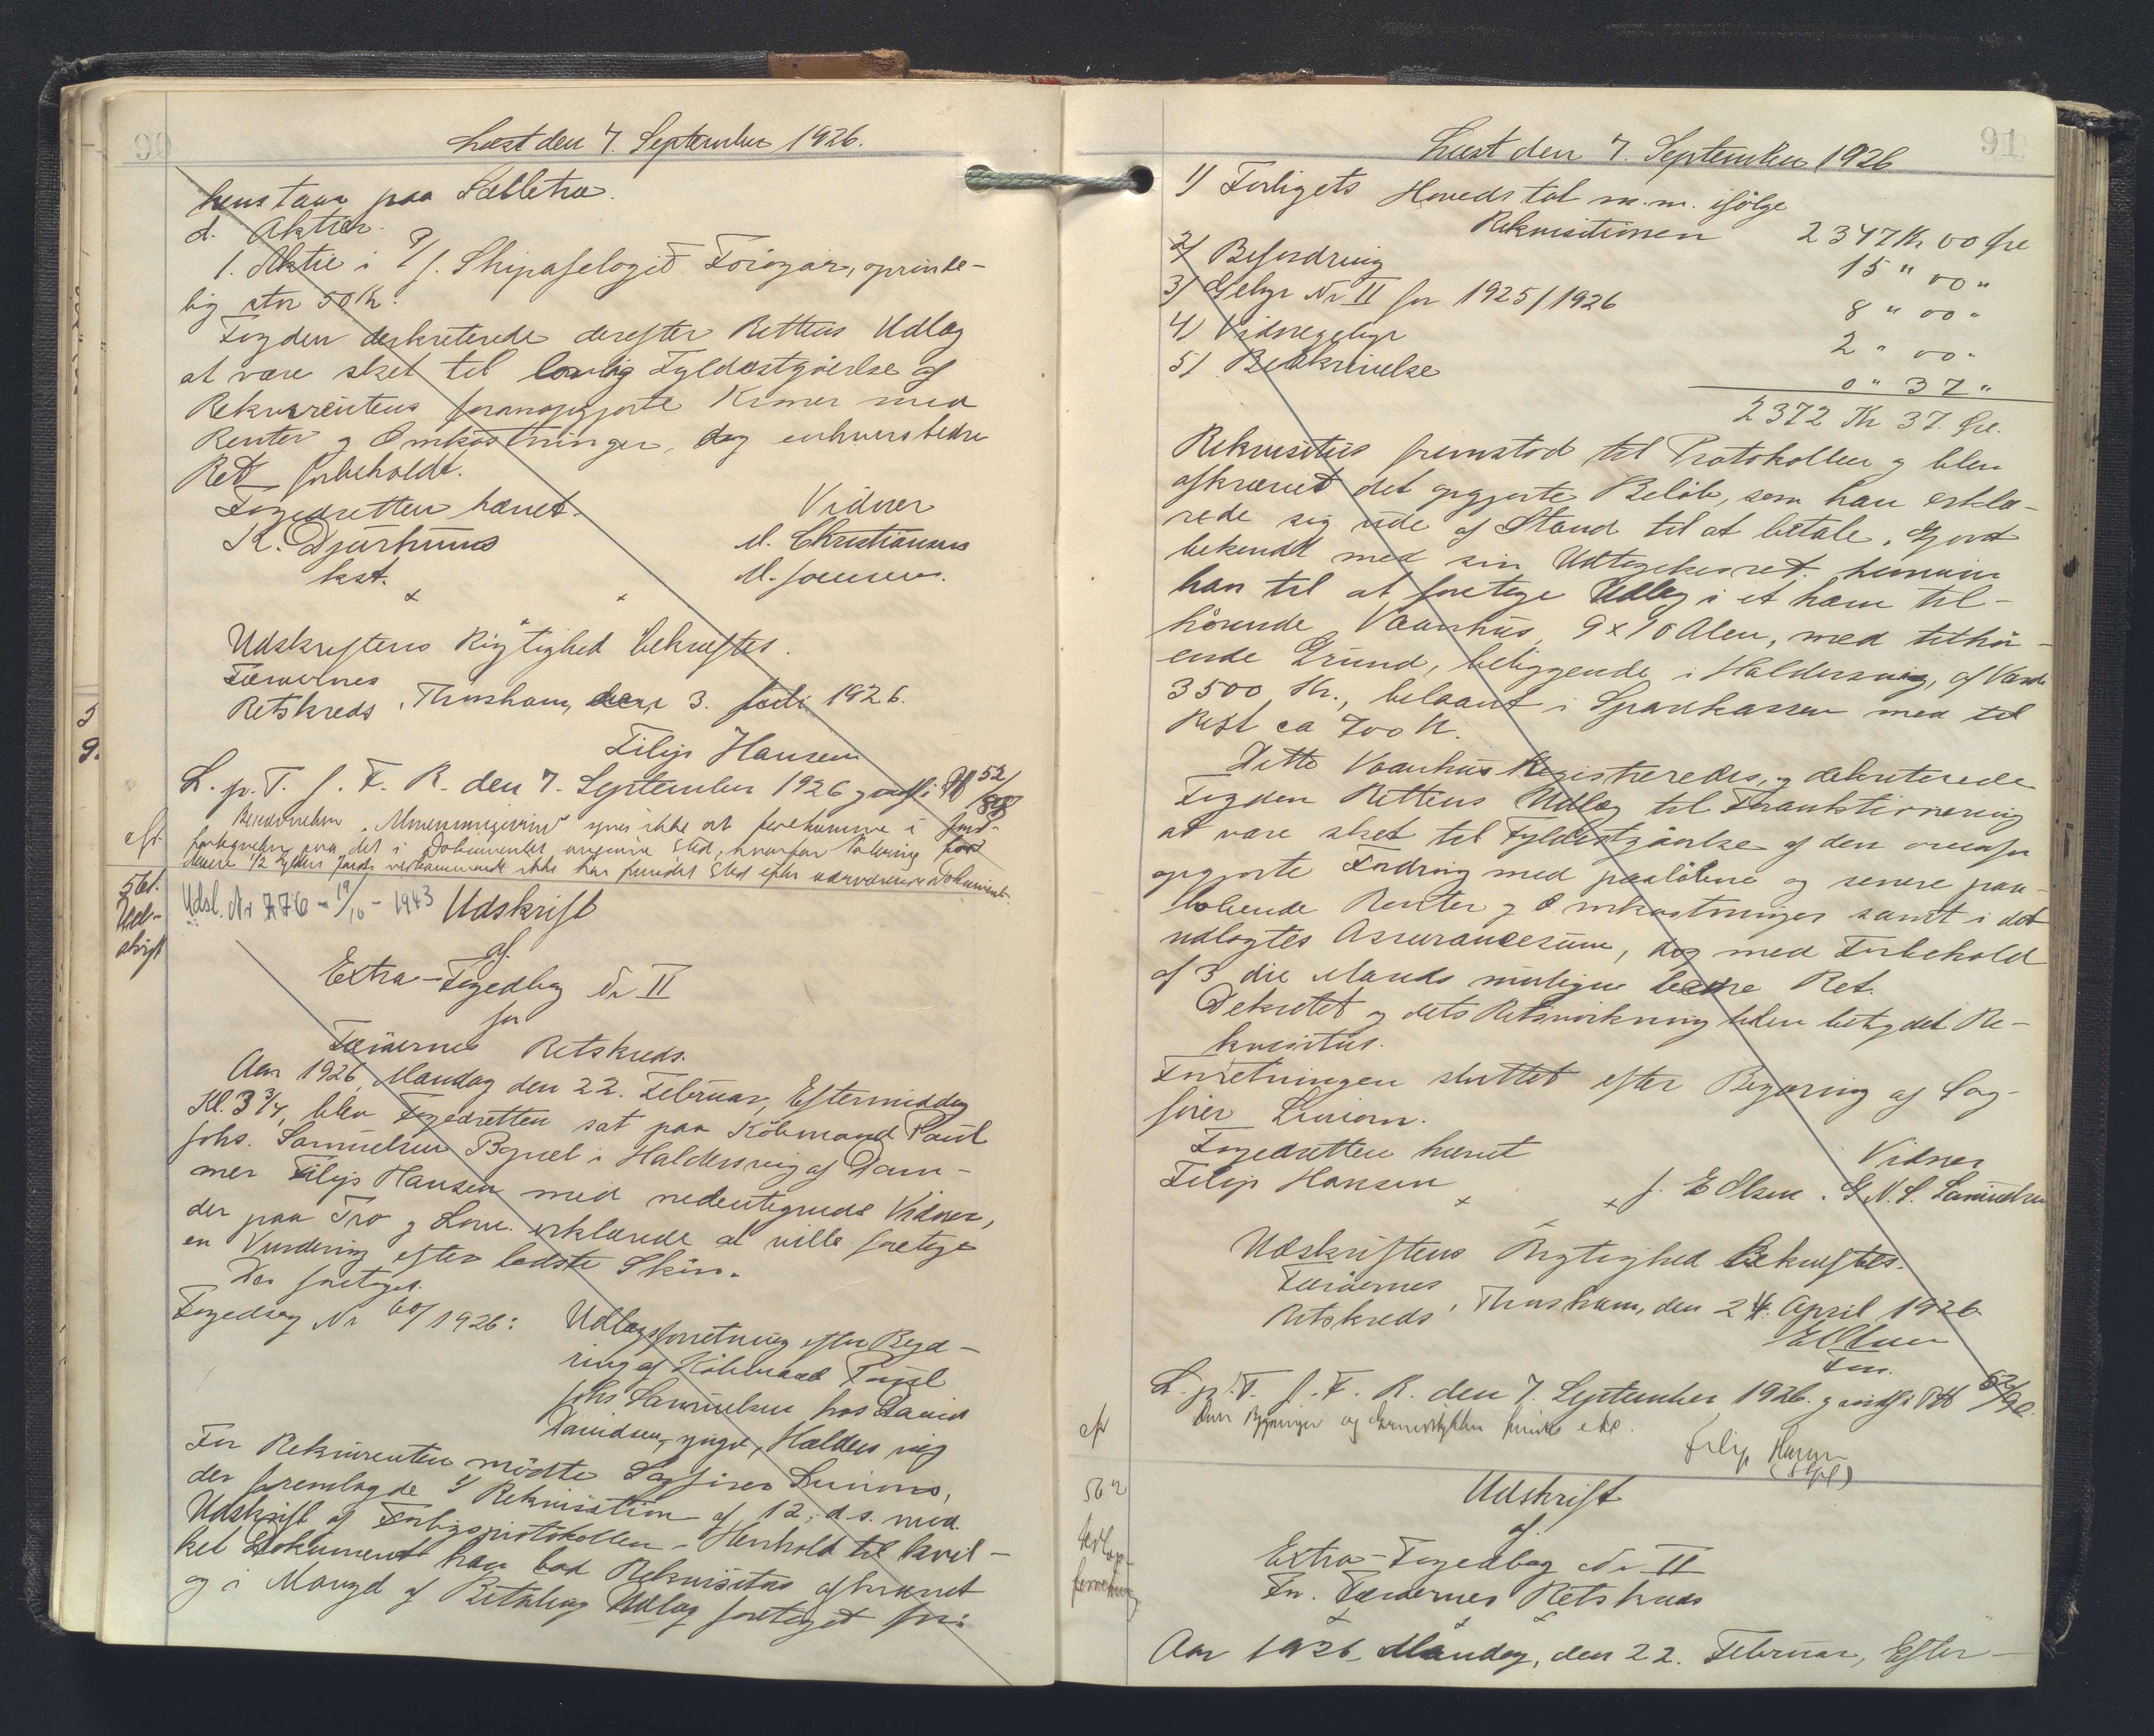 90
Læst den 7. September 1926.
henstaar paa Sæbletræ.
d. Aktier.
1. Aktie i P/f. Skipafelagið Føroyar, oprinde-
lig stor 50 Kr.
Fogden dekreterede derefter Rettens Udlæg
at være sket til lovlig Fyldestgørelse af
Rekvirentens foranopgjorte Kroner med
Renter og Omkostninger, dog enhvers bedre
Ret forbeholdt.
Fogedretten hævet.
Vidner
K. Djurhuus
M. Christiansen
kst.
M. Joensen.
Udskriftens Rigtighed bekræftes.
Færøernes
Retskreds, Thorshavn, den 3. Juli 1926.
Filip Hansen
L. p. T. f. F. R. den 7. September 1926 og indf. i PB 52/88
synes ikke at forekomme i
paa det i Dokumentet angivne Sted, hvorfor
denne 1/2 Gylden Jords vedkommende ikke har fundet Sted efter nærværende Dokument.
cfr
561.
Ud-
skrift
Udsl. Nr 776 - 19/10 - 1943
Udskrift
af
Extra-Fogedbog Nr II
for
Færøernes Retskreds.
Aar 1926, Mandag den 22. Februar, Eftermiddag
Kl. 3 3/4, blev Fogedretten sat paa Købmand Poul
Johs. Samuelsen Bopæl i Haldersvig af Dom-
mer Filip Hansen med nedentegnede Vidner,
der paa Tro og Love erklærede at ville foretage
en Vurdering efter bedste Skøn.
Der foretoges.
Fogedsag Nr 60/1926:
Udlægsforretning efter Begæ-
ring af Købmand Poul
Johs Samuelsen hos David
Davidsen, yngre, Haldersvig
For Rekvirenten mødte Sagfører Lützen,
der fremlagde 1/ Rekvisition af 12. d. s. med
Udskrift af Forligsprotokollen - Henhold til hvil-
ket Dokument han bad Rekvisitus afkrævet
og i Mangel af Betaling Udlæg foretaget for:
91
Læst den 7. September 1926
1) Forligets Hovedstol m.m. ifølge
Rekvisitionen 2347 Kr 00 Øre
2) Befordring 15 " 00 "
3) Gebyr Nr II for 1925/1926 8 " 00 "
4) Vidnegebyr 2 " 00 "
5) Beskrivelse 0 " 37 "
2372 Kr 37 Øre.
Rekvisitus fremstod til Protokollen og blev
afkrævet det opgjorte Beløb, som han erklæ-
rede sig ude af Stand til at betale. Gjort
bekendt med sin Udtagelsesret henviste
han til at foretage Udlæg i et ham til-
hørende Vaanhus, 9 x 10 Alen, med tilhø-
ende Grund, beliggende i Haldersvig, af Værdi
3500 Kr., belaant i Sparekassen med til
Rest ca 700 Kr.
Dette Vaanhus Registreredes, og dekreterede
Fogden Rettens Udlæg til Frauktionering
at være sket til Fyldestgørelse af den ovenfor
opgjorte Fordring med paaløbne og senere paa-
løbende Renter og Omkostninger samt i det
udlagtes Assurancesum, dog med Forbehold
af 3 die Mands mulige bedre Ret.
Dekretet og dets Retsvirkning blev betydet Re-
kvisitus.
Forretningen sluttet efter Begæring af Sag-
fører
Fogedretten hævet
Vidner
Filip Hansen
J. E Olsen. G. N. S. Samuelsen
Udskriftens Rigtighed Bekræftes.
Færøernes
Retskreds, Thorshavn, den 24. April 1926
Fm.
L. p. T. f. F. R. den 7. September 1926. og indf. i PB 52/90.
cfr
Filip Hansen
(Sgd)
562
Udlægs-
forretning
Udskrift
af
Extra-Fogedbog Nr II
For. Færøernes Retskreds
Aar 1926. Mandag, den 22. Februar, Efter-